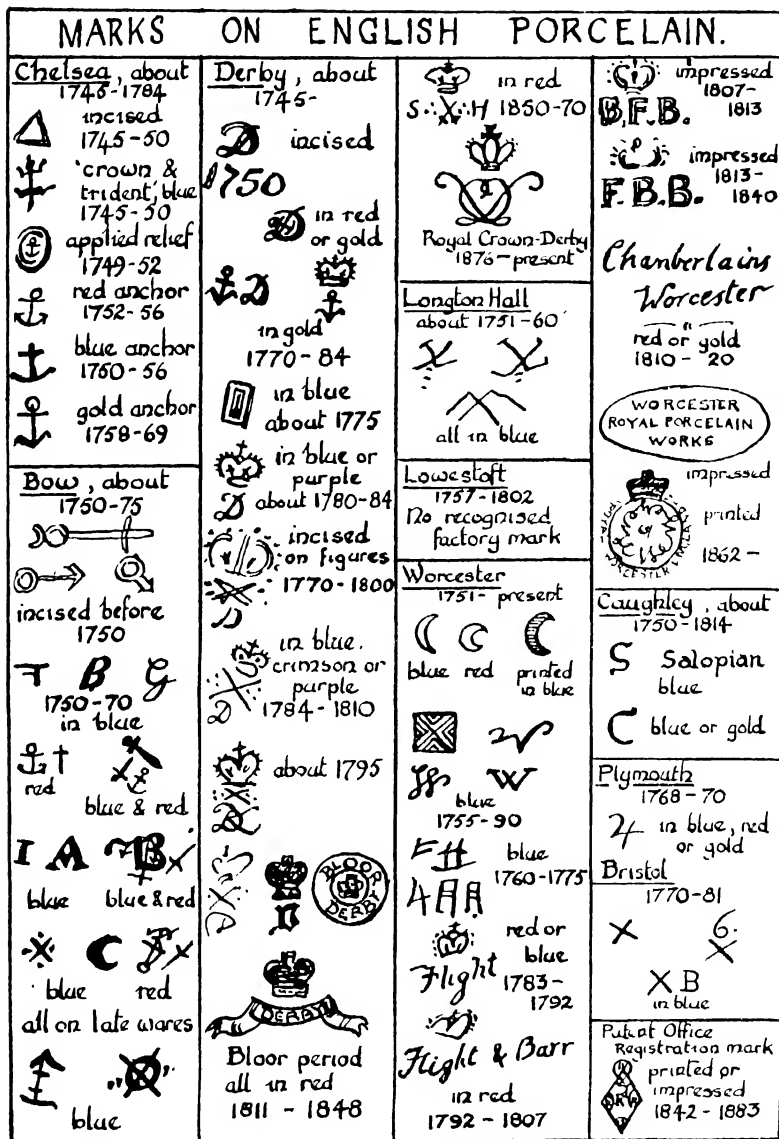 MARKS ON ENGLISH PORCELAIN.
Chelsea, about
1745-1784
incised
1745-50
'crown &
trident, blue
1745-50
applied relief
1749-52
red anchor
1752-56
blue anchor
1750-56
gold anchor
1758-69
Bow, about
1750-75
incised before
1750
B G
1750-70
in blue
red
blue & red
I A B
blue
blue & red
blue
red
all on late wares
blue
Derby, about
1745-
D incised
1750
D in red
or gold
D
in gold
1770-84
in blue
about 1775
in blue or
purple
D about 1780-84
incised
on figures
1770-1800
in blue,
crimson or
purple
D 1784-1810
about 1795
D
D D
BLOOR
DERBY
DERBY
Bloor period
all in red
1811 - 1848
in red
S X H 1850-70
Royal Crown-Derby
1876-present
Longton Hall
about 1751-60
all in blue
Lowestoft
1757-1802
No recognised
factory mark
Worcester
1751- present
blue red printed
in blue
W W
blue
1755-90
blue
1760-1775
red or
blue
Flight 1783-
1792
Flight & Barr
in red
1792 - 1807
impressed
1807-
B.F.B. 1813
impressed
1813-
F.B.B. 1840
Chamberlains
Worcester
red or gold
1810 - '20
WORCESTER
ROYAL PORCELAIN
WORKS
impressed
printed
1862-
Caughley, about
1750-1814
S Salopian
blue
C blue or gold
Plymouth
1768-70
in blue, red
or gold
Bristol
1770-81
X 6.
X
X B
in blue
Patent Office
Registration mark
printed or
impressed
1842 - 1883